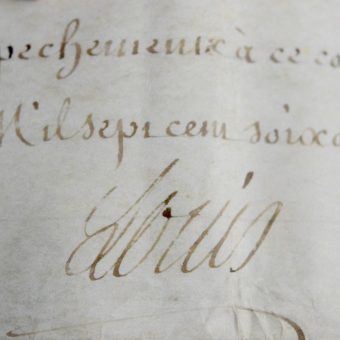 pechemens à ce co
Mil sept cent soixa
Louis